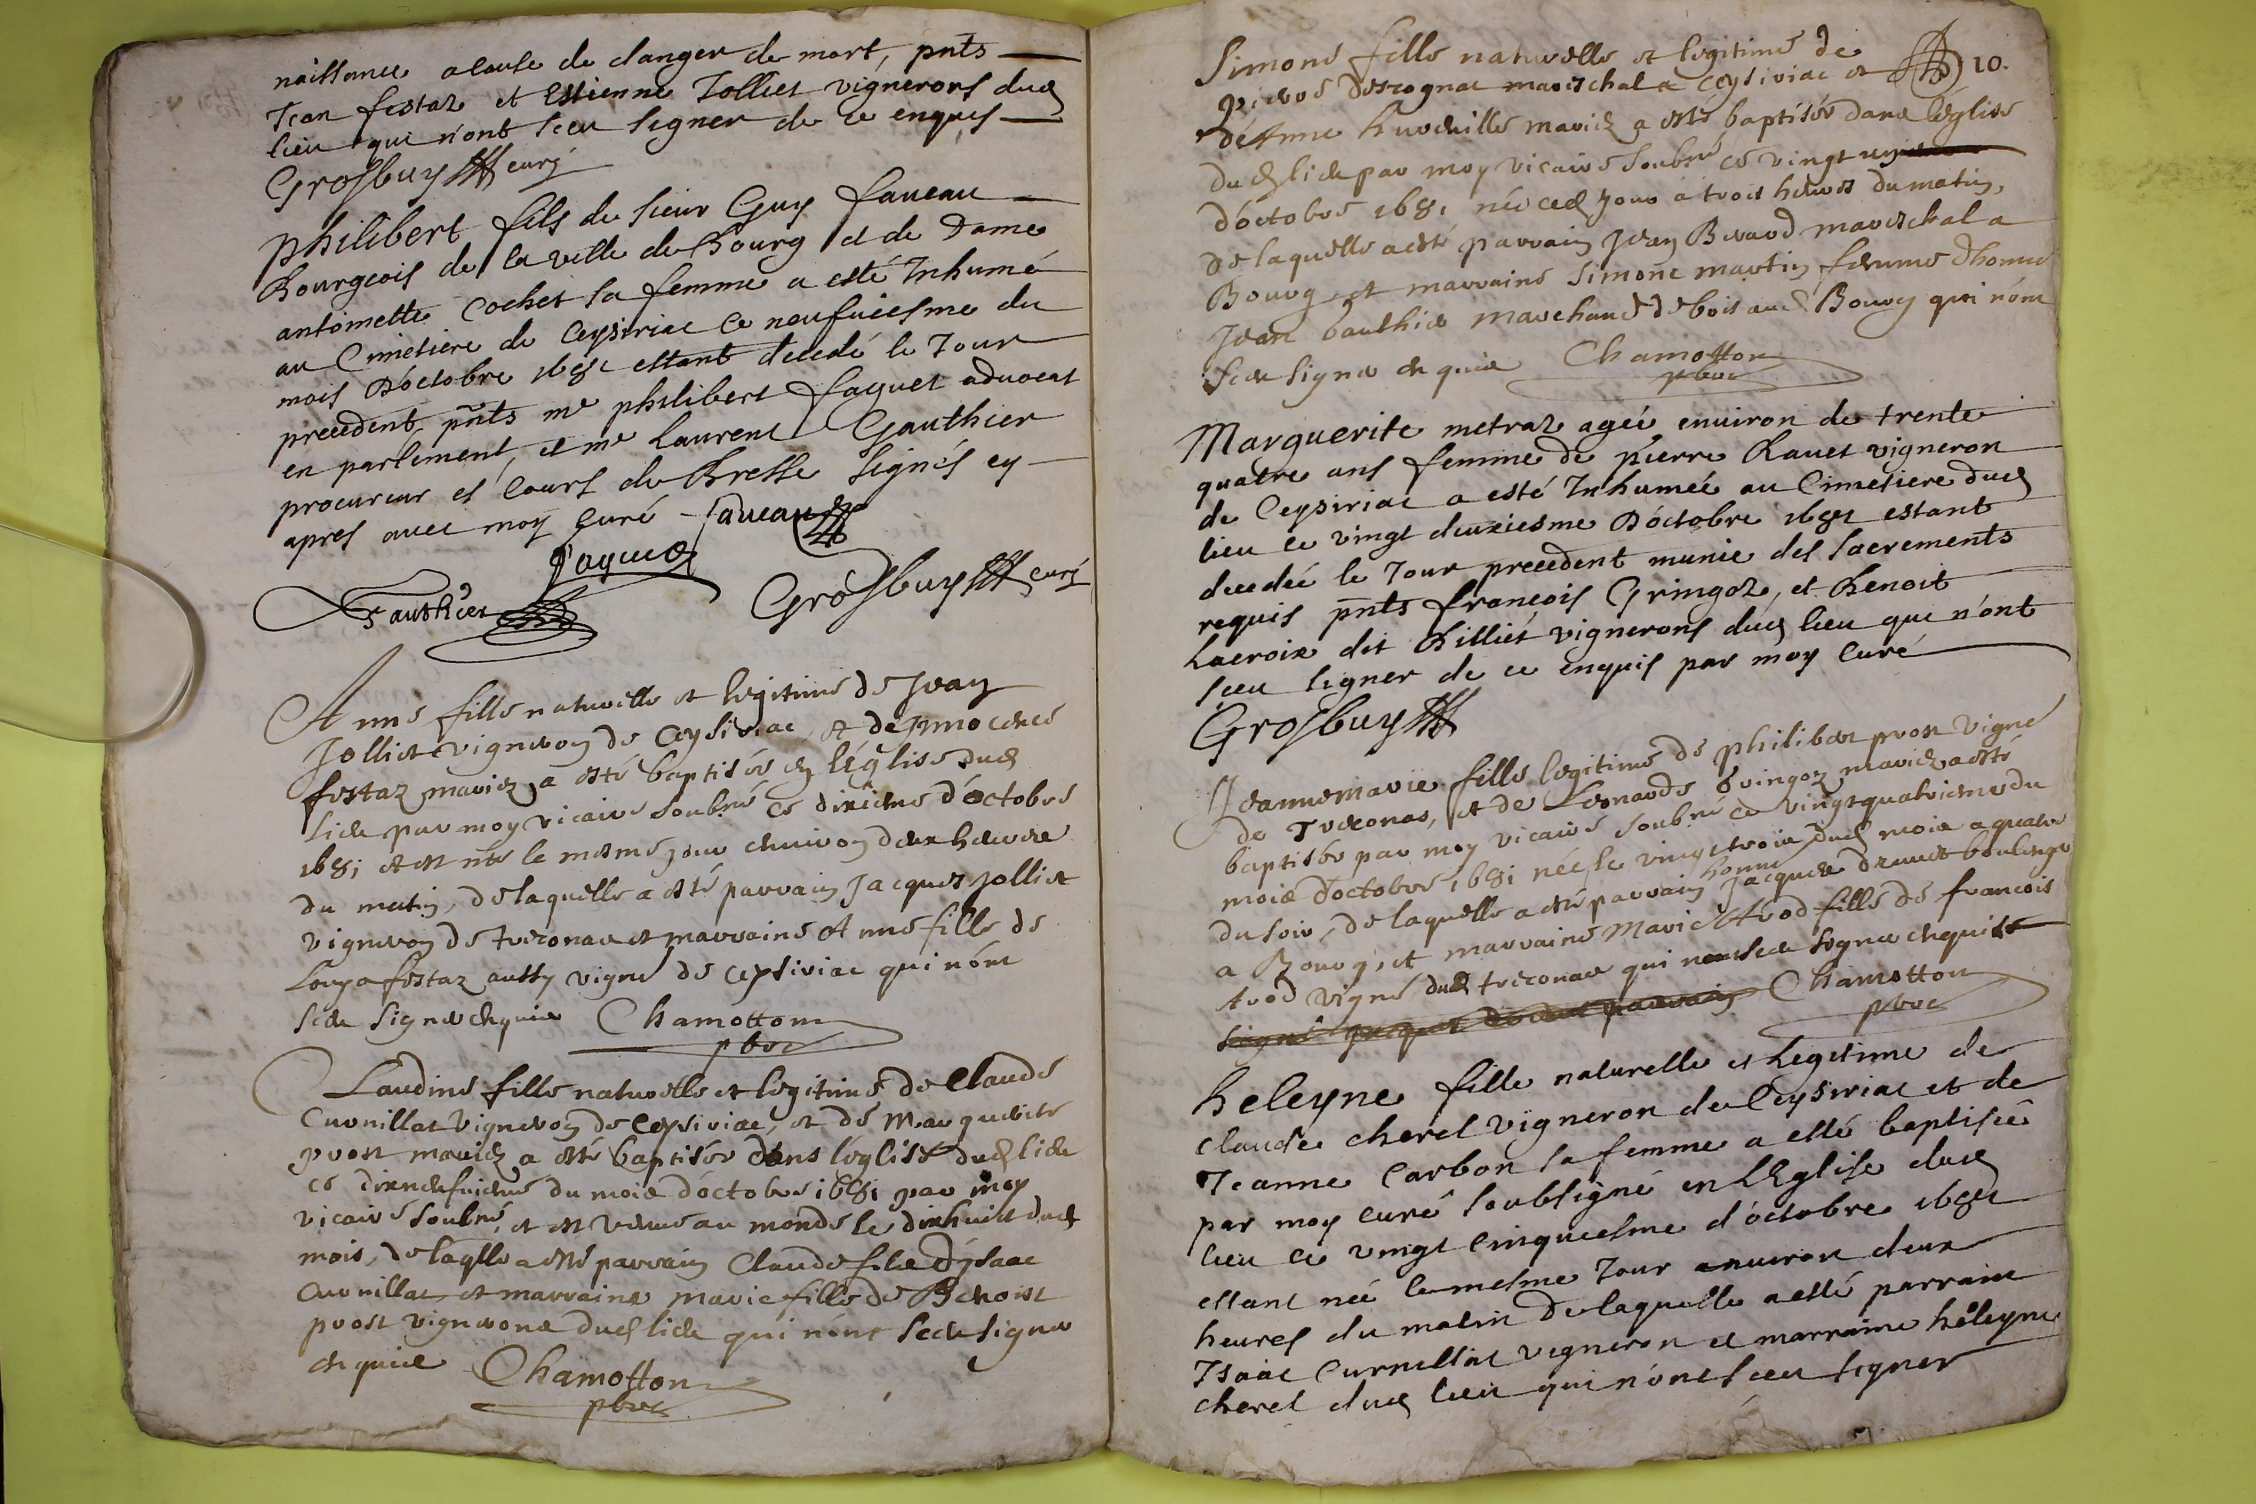 naissance a cause de danger de mort, pnts
Jean festaz et Estienne Jolliet vignerons dud
lieu qui n'ont sceu signer de ce enquis
Grosbuy curé
Philibert fils de sieur Guy faueau
Bourgeois de la ville de Bourg et de Dame
antoinette Cochet sa femme a esté Inhumé
au Cimetiere de Ceysiriac ce neufuiesme du
mois D'octobre 1681 estant decedé le Jour
precedent, pnts me philibert faguet aduocat
en parlement, et me Laurent Gauthier
procureur es Cours de Bresse signés cy
apres auec moy Curé faueau
faguet
Gauthier Grosbuy curé
Anne fille naturelle et legitime de Jean
Jolliet vigneron de Ceysiriac, et de Innocence
festaz mariez a esté baptisée en l'Église dud
lieu par moy vicaire soubné ce dixieme d'octobre
1681 et est née le mesme jour enuiron deux heures
du matin, de laquelle a esté parrain Jacques Jolliet
vigneron de treconas et marraine Anne fille de
Louys festaz aussy vigne de ceysiriac qui n'ont
sceu signer enquis Chamotton
pbre
Laudine fille naturelle et legitime de Claude
Curnillat vigneron de Ceysiriac, et de Marguerite
prost mariez a esté baptisée dans l'église dud lieu
ce dixneufuieme du mois d'octobre 1681 par moy
vicaire soubné, et est venue au monde le dixhuict dud
mois, de laqlle a esté parrain Claude fils d'ysaac
Curnillat et marraine marie fille de Benoist
prost vignerons dud lieu qui n'ont sceu signer
enquis Chamotton
pbre
Simone fille naturelle et legitime de
10.
pierre Descognat mareschal a Ceysiriac et
d'Anne mariez a esté baptisée dans l'église
dud lieu par moy vicaire soubné ce vingt
d'octobre 1681 née ced jour a trois heures du matin,
de laquelle a esté parrain Jean Berard mareschal a
Bourg et marraine Simone martin femme d'honne
Jean Gauthier marchand de bois aud Bourg qui n'ont
sceu signer enquis Chamotton
pbre
Marguerite metraz agée enuiron de trente
quatre ans femme de pierre Rauet vigneron
de Ceysiriac a esté Inhumée au Cimetiere dud
lieu ce vingt deuxiesme D'octobre 1681 estant
decedée le Jour precedent munie des sacrements
requis pnts francois Gringoz, et Benoit
Lacroix dit Billiet vignerons dud lieu qui n'ont
sceu signer de ce enquis par moy Curé
Grosbuy
Jeannemarie fille legitime de philibert prost vigne
de Treconas, et de Leonarde gringoz mariez a esté
baptisée par moy vicaire soubné ce vingtquatrieme du
mois d'octobre 1681 née le vingttrois dud mois a quatre
du soir, de laquelle a esté parrain honne Jacques boulenger
a Bourg, et marraine Marie Arod fille de francois
Arod vigne dud treconas qui sceu signer enquis
Chamotton
pbre
heleyne fille naturelle et Legitime de
Claude cherel vigneron de Ceysiriac et de
Jeanne Carbon sa femme a esté baptisée
par moy curé soubsigné en L'Eglise dud
lieu ce vingt cinquiesme d'octobre 1681
estant née le mesme Jour enuiron deux
heures du matin de laquelle a esté parrain
Isaac Curnillat vigneron et marraine héleyne
cherel dud lieu qui n'ont sceu signer